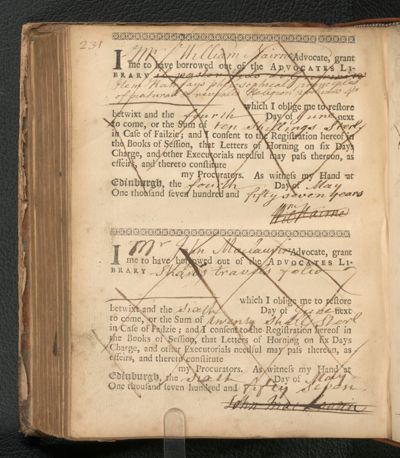 231
I Mr William Nairn Advocate, grant
me to have borrowed out of the ADVOCATES LI-
BRARY
Item Ramsays philosophical principles
of natural & revealed Religion 2 vols 4to
which I oblige me to restore
betwixt and the fourth Day of June next
to come, or the Sum of ten Shillings Sterl
in Case of Failzie; and I consent to the Registration hereof in
the Books of Session, that Letters of Horning on six Days
Charge, and other Executorials needful may pass thereon, as
effeirs, and thereto constitute
my Procurators. As witness my Hand at
Edinburgh, the fourth Day of May
One thousand seven hundred and fifty seven years
Wm Nairne
I Mr John Maclaurin Advocate, grant
me to have borrowed out of the ADVOCATES LI-
BRARY Shaws travels folio
which I oblige me to restore
betwixt and the sixth Day of June next
to come, or the Sum of twenty Shill Sterl
in Case of Failzie; and I consent to the Registration hereof in
the Books of Session, that Letters of Horning on six Days
Charge, and other Executorials needful may pass thereon, as
effeirs, and thereto constitute
my Procurators. As witness my Hand at
Edinburgh, the sixth Day of May
One thousand seven hundred and fifty seven
John MacLaurin